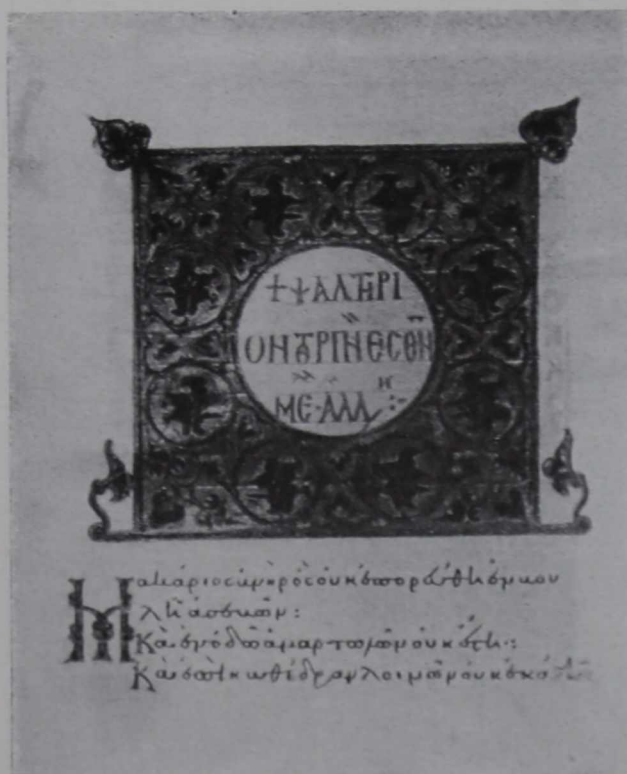 +ΨΑΛΤΗΡΙ
ΟΝ
Μακάριος ἀνὴρ ὃς οὐκ ἐπορεύθη ἐν βου
λῇ ἀσεβῶν:
Καὶ ἐν ὁδῷ ἁμαρτωλῶν οὐκ ἔστη:
Καὶ ἐπὶ καθέδραν λοιμῶν οὐκ